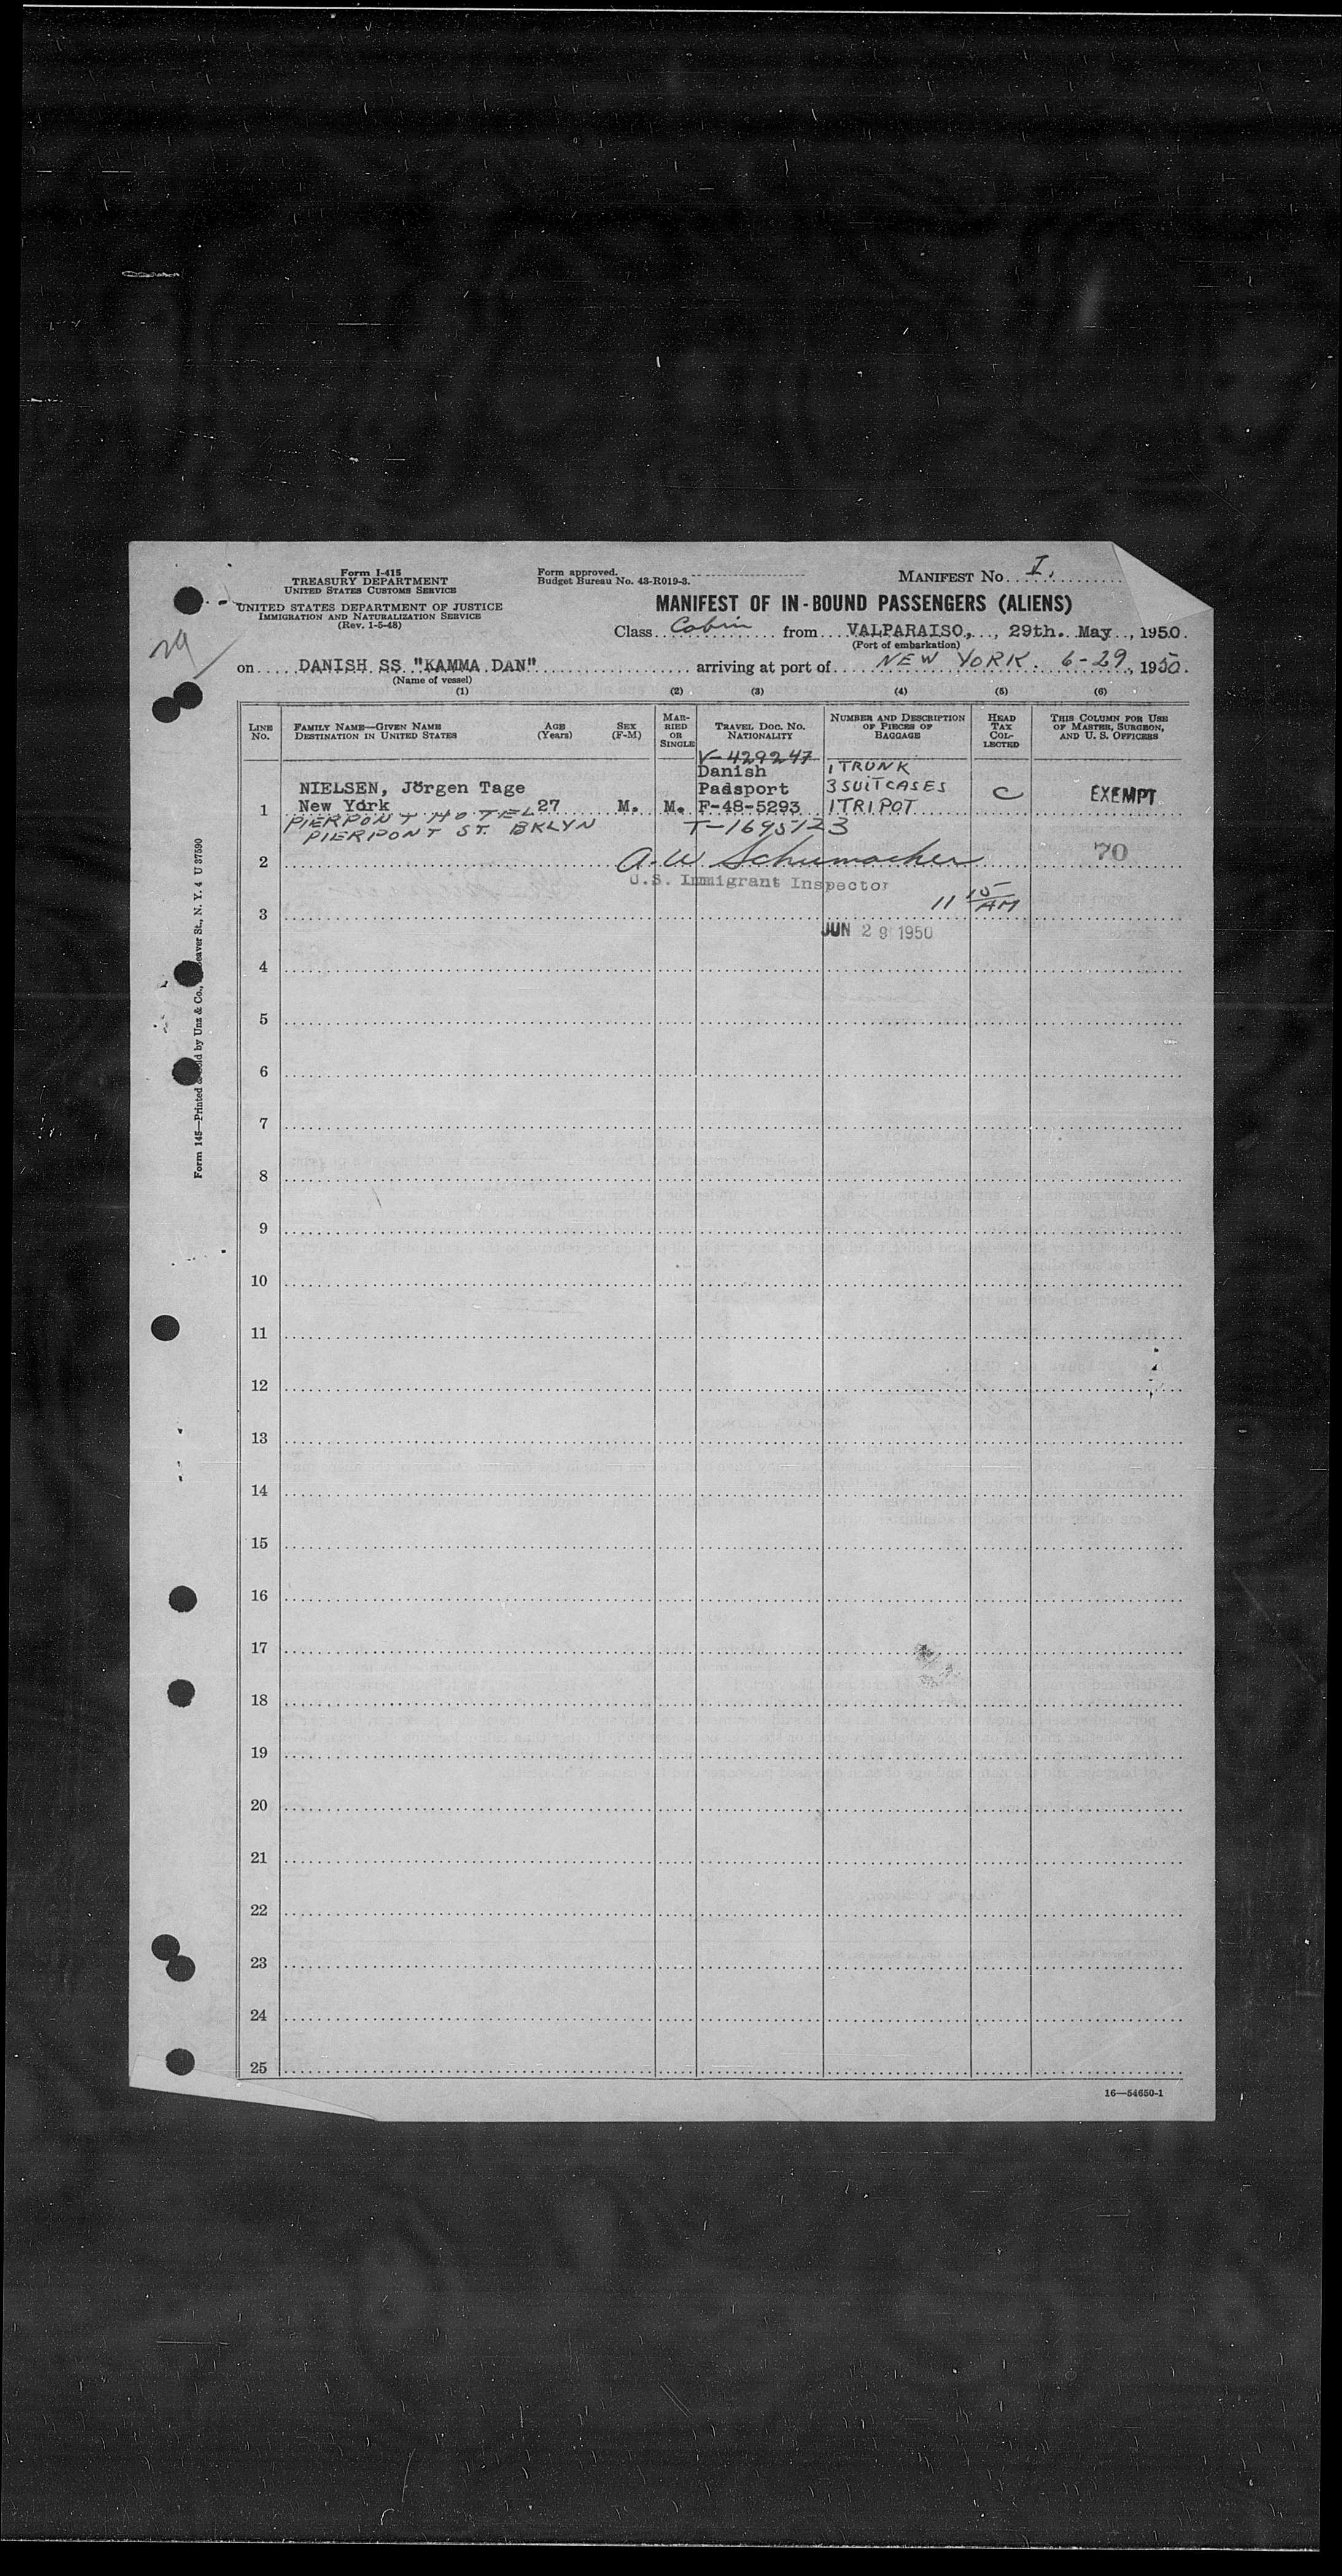 Form I-415
TREASURY DEPARTMENT
UNITED STATES CUSTOMS SERVICE
UNITED STATES DEPARTMENT OF JUSTICE
IMMIGRATION AND NATURALIZATION SERVICE
(Rev. 1-5-48)
Form approved.
Budget Bureau No. 43-R019-3.
MANIFEST No. I.
MANIFEST OF IN-BOUND PASSENGERS (ALIENS)
Class Cabin from VALPARAISO, 29th. May, 1950.
(Port of embarkation)
on DANISH SS "KAMMA DAN" arriving at port of NEW YORK. 6-29, 1950.
(Name of vessel)
(1) (2) (3) (4) (5) (6)
LINE No.
FAMILY NAME—GIVEN NAME
DESTINATION IN UNITED STATES
AGE (Years)
SEX (F-M)
MARRIED OR SINGLE
TRAVEL DOC. NO. NATIONALITY
NUMBER AND DESCRIPTION OF PIECES OF BAGGAGE
HEAD TAX COLLECTED
THIS COLUMN FOR USE OF MASTER, SURGEON, AND U. S. OFFICERS
V-429247
Danish 1 TRUNK
NIELSEN, Jörgen Tage Passport 3 SUITCASES C EXEMPT
1 New York 27 M. M. F-48-5293 1 TRIPOT
PIERPONT HOTEL T-1695123
PIERPONT ST. BKLYN
2 A.W Schumacher 70
U.S. Immigrant Inspector
3 11 15/AM
JUN 29 1950
4
5
6
7
8
9
10
11
12
13
14
15
16
17
18
19
20
21
22
23
24
25
16—54650-1
Form 145—Printed & Sold by Unz & Co., Beaver St., N. Y. 4 U 37590